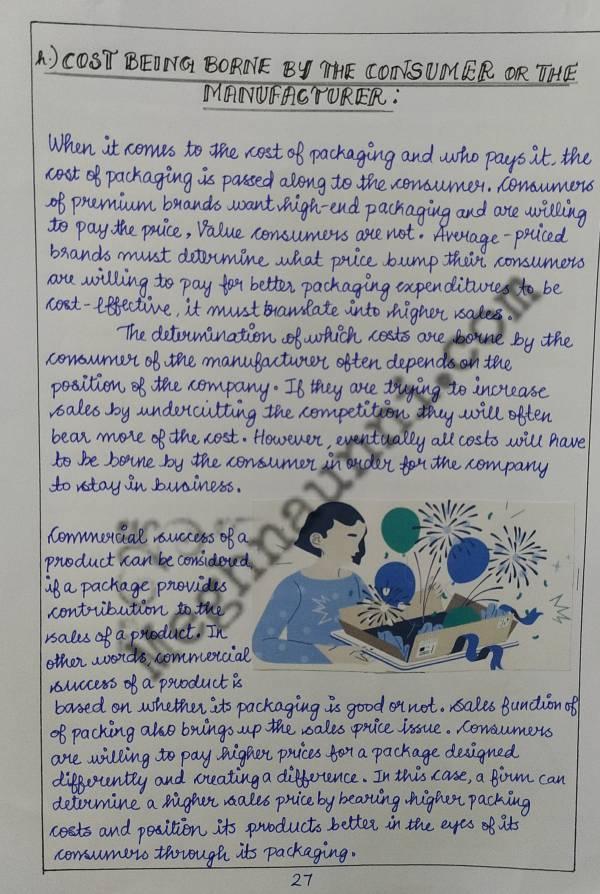 h.) COST BEING BORNE BY THE CONSUMER OR THE
MANUFACTURER:
When it comes to the cost of packaging and who pays it, the
cost of packaging is passed along to the consumer. Consumers
of premium brands want high-end packaging and are willing
to pay the price, Value consumers are not. Average-priced
brands must determine what price bump their consumers
are willing to pay for better packaging expenditures to be
cost-effective, it must translate into higher sales.
The determination of which costs are borne by the
consumer of the manufacturer often depends on the
position of the company. If they are trying to increase
sales by undercutting the competition they will often
bear more of the cost. However, eventually all costs will have
to be borne by the consumer in order for the company
to stay in business.
Commercial success of a
product can be considered
if a package provides
contribution to the
sales of a product. In
other words, commercial
success of a product is
based on whether its packaging is good or not. Sales function of
of packing also brings up the sales price issue. Consumers
are willing to pay higher prices for a package designed
differently and creating a difference. In this case, a firm can
determine a higher sales price by bearing higher packing
costs and position its products better in the eyes of its
consumers through its packaging.
27